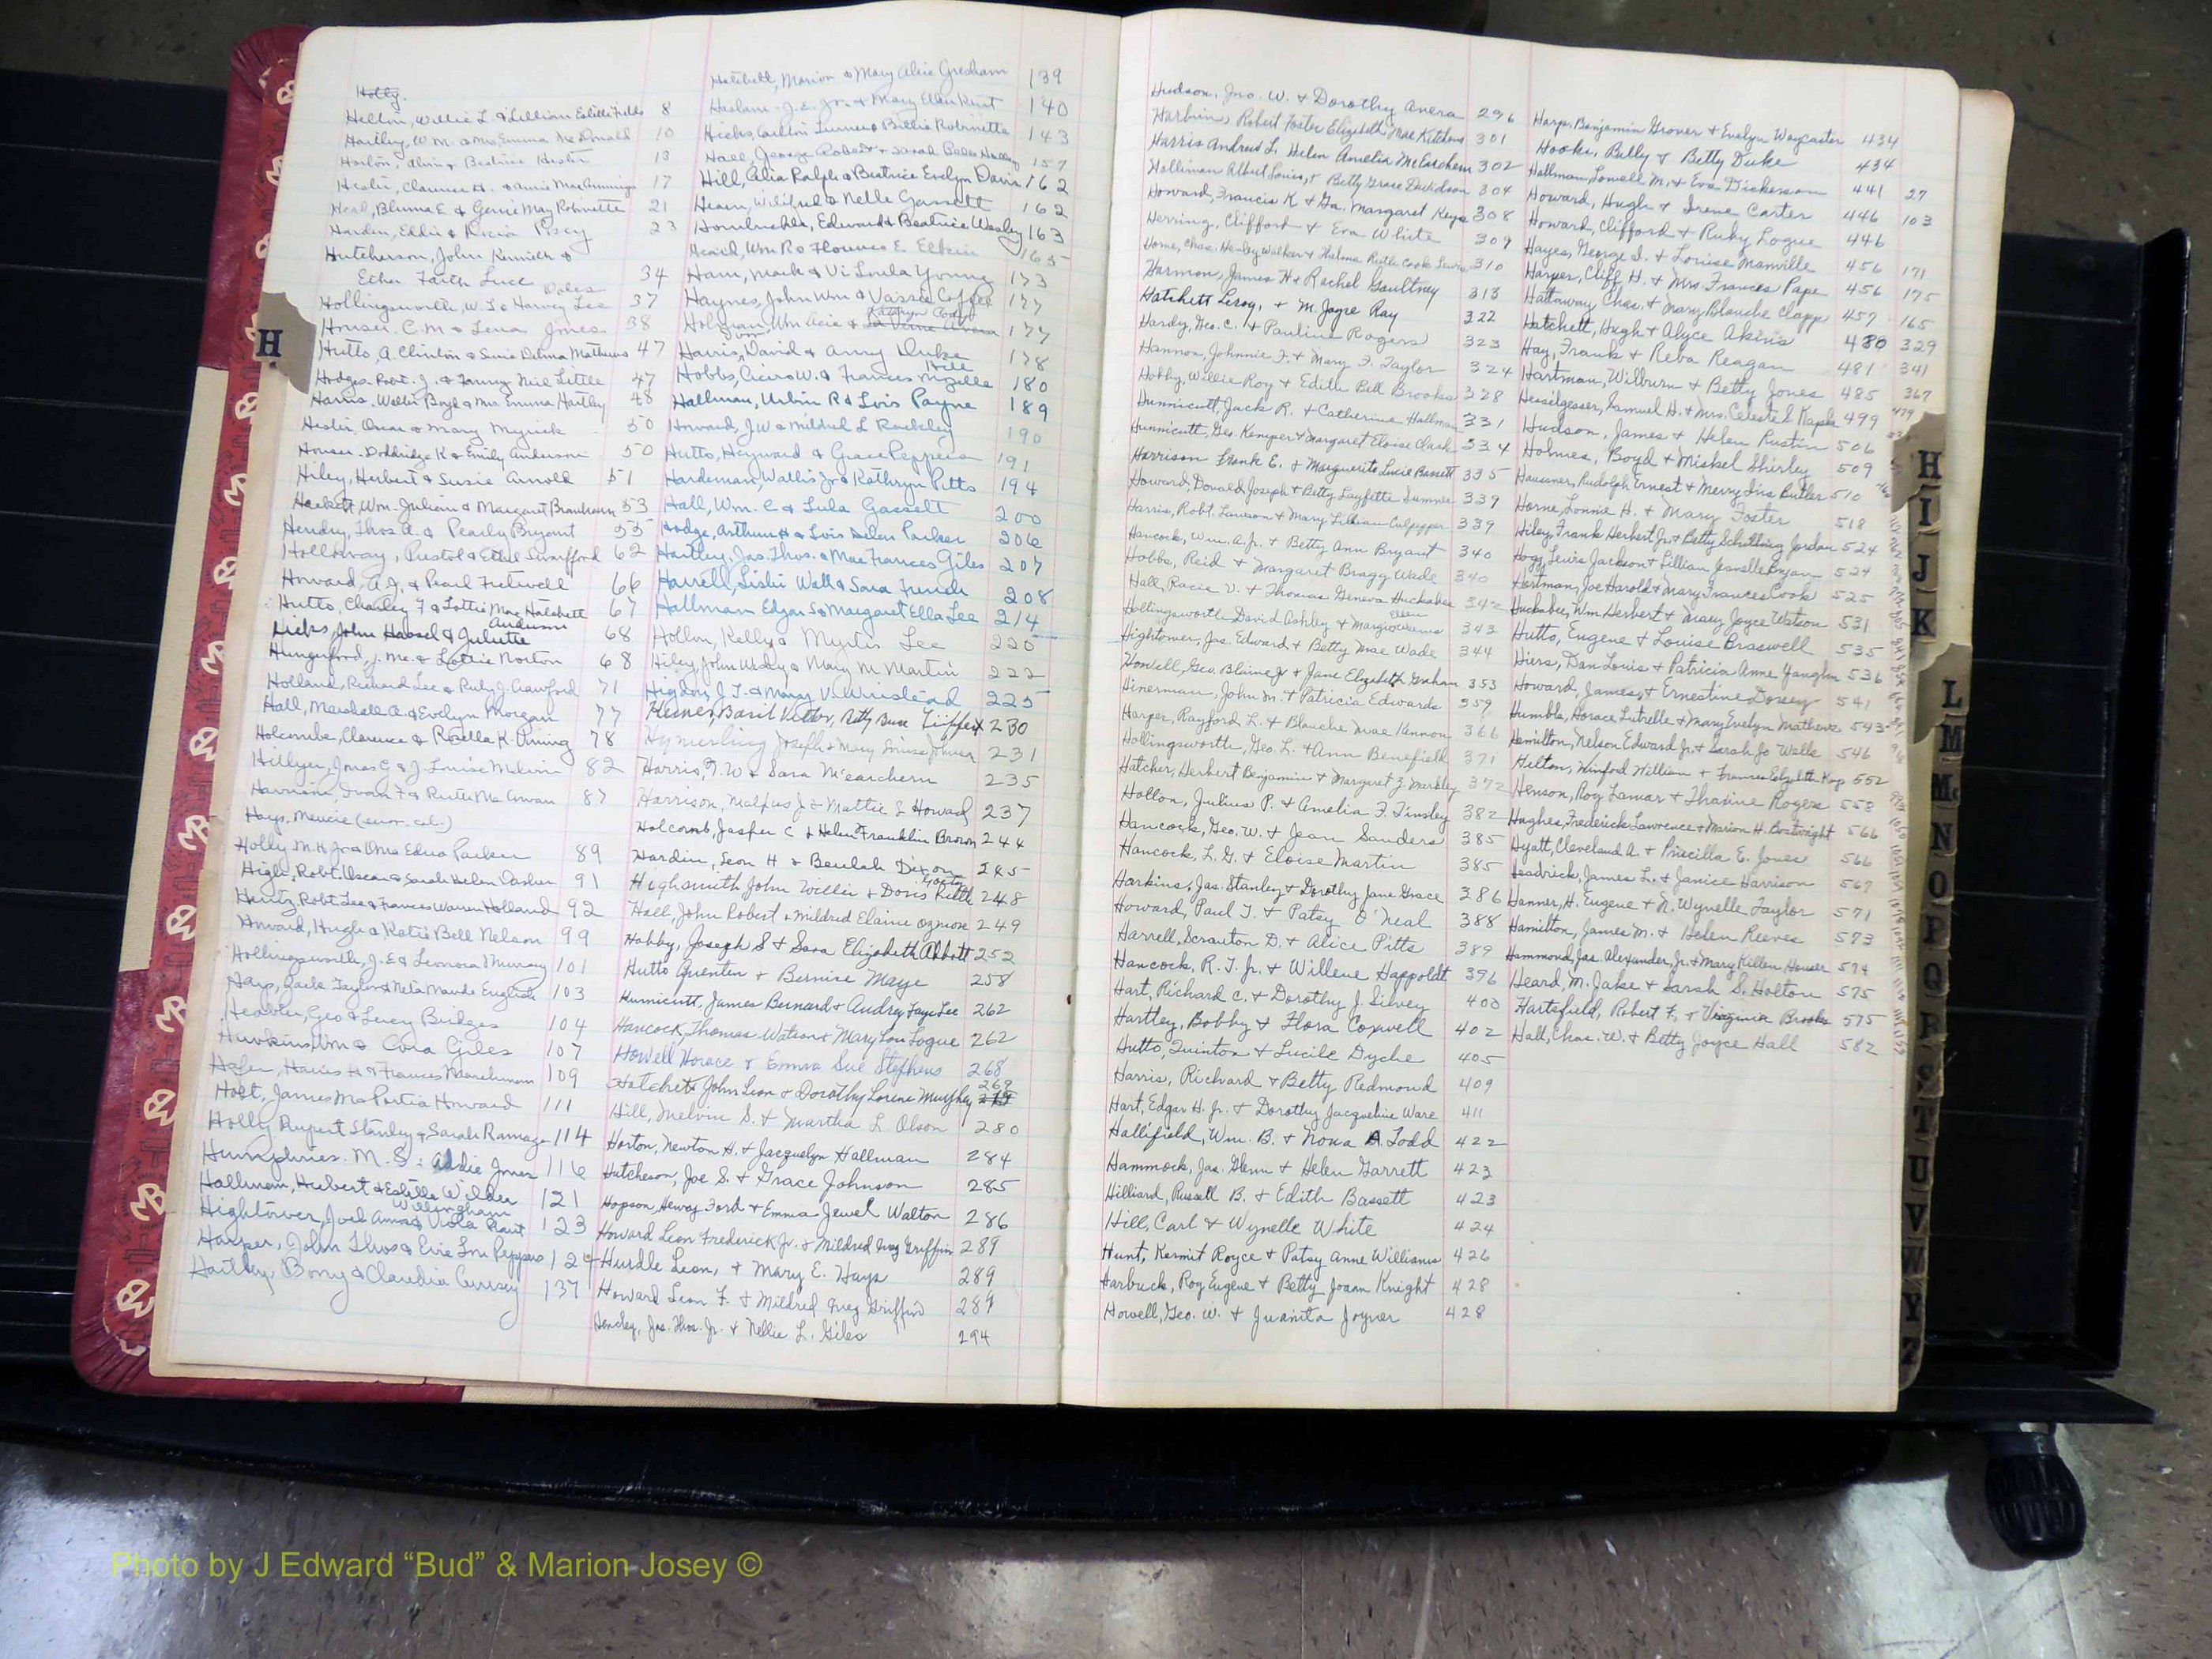 Holly
Hilton, Willie L. & Lillian Estelle Fields 8
Hartley, W. M. & Mrs. Emma McDonald 10
Beatrice Hester 13
Hester, Clarence H. & Annie Mae 17
Head, Bluma E. & Gerrie May Robinette 21
Harden, Eddie & Posey 23
Hutcherson, John Kenneth &
Esther Faith Luce 34
Hollingsworth, W. T. & Harvey Lee 37
Houser, C. M. & Lena Jones 38
Hutto, A. Clinton & Susie Delma Mathews 47
Hodges, Robt. J. & Fanny Neil Little 47
Harris, Walter Boyd & Mrs Emma Hartley 48
Hester, Oscar & Mary Myrick 50
Houser, Doddridge K & Emily Anderson 50
Hiley, Herbert & Susie Arnold 51
Hackett, Wm. Julian & Margaret Branham 53
Hendry, Thos A. & Pearly Bryant 55
Holloway, Preston & Ethel Swafford 62
Howard, A. J. & Pearl Fretwell 66
Hutto, Charley F & Lottie Mae Hatchett 67
Hicks, John Hassel & Juliette Anderson 68
Hungerford, J. Mc. & Lottie Norton 68
Holland, Richard Lee & Ruby J. Crawford 71
Hall, Marshall A. & Evelyn Morgan 77
Holcombe, Clarence & Roella K. Dining 78
Hillyer, Jonas G & J. Louise Melvin 82
Harrison, Ivan F & Ruth Mc 87
Hays, Mencie (
Holly M. H. Jr & Oma Edna Parker 89
High, Robt. Oscar & Sarah Helen Dasher 91
Hertz, Robt Lee & Frances Warren Holland 92
Howard, Hugh & Katie Bell Nelson 99
Hollingsworth, J. E & Leonora Murray 101
Harp, Jack Taylor & Neta Maude English 103
Geo & Lucy Bridges 104
Hawkins, Wm & Cora Giles 107
& Frances Marchman 109
Holt, James Ma Portia Howard 111
Holly Rupert Stanley & Sarah Ramage 114
Humphries, M. S. & Addie Jones 116
Hallman, Hubert & Estelle Wilder 121
Hightower, Josh Willingham & Viola 123
Harper, John Thos & Evie Lou Peppers 124
Hartley, Bony & Claudia Cursey 137
Hatchett, Marion & Mary Alice Gresham 139
Haslam, J. E. Jr. & Mary Ellen Kent 140
Hicks, Carlton Turner & Billie Robinette 143
Hall, George Robert & Sarah 157
Hill, Alia Ralph & Beatrice Evelyn Davis 162
Hearn, Wilfred & Nelle Gassett 162
Hornbuckle, Edward & Beatrice Wesley 163
Wm R & Florence E. Elkin 165
Ham, Mack & Vi Loula Young 173
Haynes, John Wm & Vassie Coffee 177
Holman, Wm Acie & Kathryn 177
Harris, David & Anny Duke 178
Hobbs, Cicero W. & Frances Mizelle 180
Hallman, Urbin R & Lois Payne 189
Howard, J W & Mildred L Rackley 190
Hutto, Heyward & Grace Peppers 191
Hardeman, Wallis Jr & Kathryn Pitts 194
Hall, Wm. C & Lula Gassett 200
Hodge, Arthur H & Lois Helen Parker 206
Hartley, Jas. Thos. & Mae Frances Giles 207
Harrell, Leslie Wall & Sara French 208
Hallman Edgar S & Margaret Ella Lee 214
Hollon, Kelly & Myrtis Lee 220
Hiley, John Wesley & Mary M. Martin 222
Higdon, J. T. & Mary V. Winstead 225
Heiner, Basil Victor, Betty Buse Tippett 230
Joseph & Mary Louise Johnson 231
Harris, T. W & Sara McEarchern 235
Harrison, Malpus J & Mattie L Howard 237
Holcomb, Jasper C & Helen Franklin Brown 244
Hardin, Leon H & Beulah Dixon 245
Highsmith John Willie & Doris Kittle 248
Hall, John Robert & Mildred Elaine Ozmore 249
Hobby, Joseph S & Sara Elizabeth Abbott 252
Hutto Quenten & Bernice Maye 258
Hunnicutt, James Bernard & Audrey Faye Lee 262
Hancock, Thomas Watson & Mary Lou Logue 262
Howell Horace & Emma Sue Stephens 268
Hatchett John Leon & Dorothy Lorene Murphy 269
Hill, Melvin S. & Martha L. Olson 280
Horton, Newton H. & Jacquelyn Hallman 284
Hutcheson, Joe S. & Grace Johnson 285
Hopson, Henry Ford & Emma Jewel Walton 286
Howard Leon Frederick Jr. & Mildred Inez Griffin 289
Hurdle Leon, & Mary E. Hays 289
Howard Leon F. & Mildred Inez Griffin 289
Hensley, Jas. Thos. Jr. & Nellie L. Giles 294
Hudson, Jno. W. & Dorothy Avera 296
Harbin, Robert Foster Elizabeth Mae Kitchens 301
Harris Andrew L. Helen Amelia McEachern 302
Halliman Albert Louis, & Betty Grace Davidson 304
Howard, Francis K & Ga. Margaret Keys 308
Herring, Clifford & Eva White 309
Horne, Chas. Henley Walker & Thelma Ruth Cooke Lewis 310
Harmon, James H & Rachel Gaultney 313
Hatchett Leroy, & M. Jayre Ray 322
Hardy, Geo. C. & Pauline Rogers 323
Hannon, Johnnie F. & Mary F. Taylor 324
Hobby, Willie Roy & Edith Bell Brooks 328
Hunnicutt, Jack R. & Catherine Hallman 331
Hunnicutt, Geo. Kemper & Margaret Eloise Clark 334
Harrison Frank E. & Marguerite Lucie Bassett 335
Howard, Donald Joseph & Betty Layfette Sumner 339
Harris, Robt. Lawson & Mary Lillian Culpepper 339
Hancock, Wm. A. Jr. & Betty Ann Bryant 340
Hobbs, Reid & Margaret Bragg Wade 340
Hall, Racie V. & Thomas Geneva Huckabee 342
Hollingsworth David Ashley & Margie Ellen Williams 343
Hightower, Jas. Edward & Betty Mae Wade 344
Howell, Geo. Blaine Jr & Jane Elizabeth Graham 353
Hinerman, John M. & Patricia Edwards 359
Harper, Rayford L. & Blanche Mae Kennon 366
Hollingsworth, Geo. L. & Ann Benefield 371
Hatcher, Herbert Benjamin & Margaret Z. Markley 372
Holton, Julius P. & Amelia F. Tinsley 382
Hancock, Geo. W. & Jean Sanders 385
Hancock, L. G. & Eloise Martin 385
Harkins, Jas. Stanley & Dorothy Jane Grace 386
Howard, Paul T. & Patsy O'Neal 388
Harrell, Scranton D. & Alice Pitts 389
Hancock, R. T. Jr. & Willene Happoldt 396
Hart, Richard C. & Dorothy J. Silvey 400
Hartley, Bobby & Flora Coxwell 402
Hutto, Quinton & Lucile Dyche 405
Harris, Richard & Betty Redmond 409
Hart, Edgar H. Jr. & Dorothy Jacqueline Ware 411
Hallifield, Wm. B. & Nona A. Todd 422
Hammock, Jas. Glenn & Helen Garrett 423
Hilliard, Russell B. & Edith Bassett 423
Hill, Carl & Wynelle White 424
Hunt, Kermit Royce & Patsy Anne Williams 426
Harbuck, Roy Eugene & Betty Joann Knight 428
Howell, Geo. W. & Juanita Joyner 428
Harp, Benjamin Grover & Evelyn Waycaster 434
Hooks, Billy & Betty Duke 434
Hallman, Lowell M. & Eva Dickerson 441 27
Howard, Hugh & Irene Carter 446 103
Howard, Clifford & Ruby Logue 446
Hayes, George S. & Louise Manville 456 171
Harper, Cliff H. & Mrs. Frances Pape 456 175
Hattaway Chas. & Mary Blanche Clapp 457 165
Hatchett, Hugh & Alyce Akins 480 329
Hay, Frank & Reba Reagan 481 341
Hartman, Wilburn & Betty Jones 485 367
Hesselgesser, Samuel H. & Mrs. Celeste S. Kapler 499 479
Hudson, James & Helen Rustin 506
Holmes, Boyd & Miskel Shirley 509
Haussner, Rudolph Ernest & Merry Iris Butler 510
Horne, Lonnie H. & Mary Foster 518
Hiley, Frank Herbert Jr & Betty Schilling Jordan 524
Hogg, Lewis Jackson & Lillian Jeanelle Bryan 524
Hartman, Joe Harold & Mary Frances Cook 525
Huckabee, Wm. Herbert & Mary Joyce Watson 531
Hutto, Eugene & Louise Braswell 535
Hiers, Dan Louis & Patricia Anne Vaughn 536
Howard, James & Ernestine Dorsey 541
Humble, Horace Lutrelle & Mary Evelyn Mathews 543
Hamilton, Nelson Edward Jr. & Sarah Jo Walke 546
Hilton, Winford William & Frances Elizabeth Kup 552
Henson, Roy Lamar & Thaxine Rogers 558
Hughes, Frederick Lawrence & Marion H. Boatwright 566
Hyatt, Cleveland A. & Priscilla E. Jones 566
Headrick, James L. & Janice Harrison 567
Hanner, H. Eugene & N. Wynelle Taylor 571
Hamilton, James M. & Helen Reeves 573
Hammond, Jas. Alexander, Jr. & Mary Killen Houser 574
Heard, M. Jake & Sarah S. Holton 575
Hartsfield, Robert F. & Virginia Brooks 575
Hall, Chas. W. & Betty Joyce Hall 582
H
H
I
J
K
L
M
Mc
N
O
P
Q
R
S
T
U
V
W
Y
Z
Photo by J Edward “Bud” & Marion Josey ©